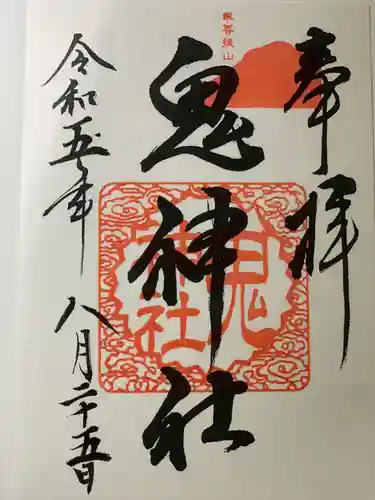 奉拝
求菩提山
鬼神社
鬼神社
令和五年 八月二十五日